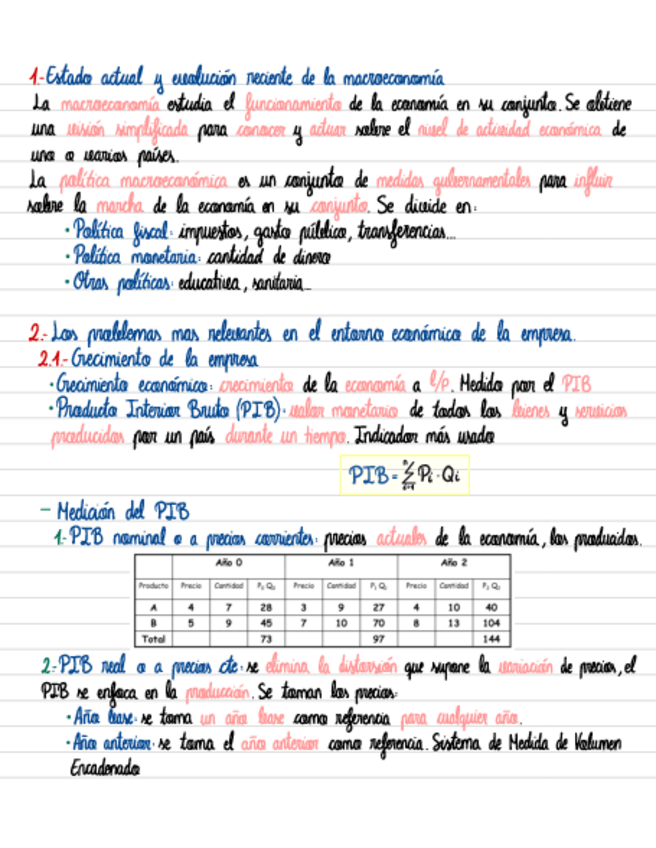 1.- Estado actual y evolución reciente de la macroeconomía
La macroeconomía estudia el funcionamiento de la economía en su conjunto. Se obtiene
una visión simplificada para conocer y actuar sobre el nivel de actividad económica de
uno o varios países.
La política macroeconómica es un conjunto de medidas gubernamentales para influir
sobre la marcha de la economía en su conjunto. Se divide en:
· Política fiscal: impuestos, gasto público, transferencias...
· Política monetaria: cantidad de dinero
· Otras políticas: educativa, sanitaria...
2.- Los problemas mas relevantes en el entorno económico de la empresa.
2.1.- Crecimiento de la empresa
· Crecimiento económico: crecimiento de la economía a l/p. Medido por el PIB
· Producto Interior Bruto (PIB): valor monetario de todos los bienes y servicios
producidos por un país durante un tiempo. Indicador más usado
PIB = Σ Pi · Qi
- Medición del PIB
1- PIB nominal o a precios corrientes: precios actuales de la economía, los producidos.
Año 0 Año 1 Año 2
Producto Precio Cantidad P₀ Q₀ Precio Cantidad P₁ Q₁ Precio Cantidad P₂ Q₂
A 4 7 28 3 9 27 4 10 40
B 5 9 45 7 10 70 8 13 104
Total 73 97 144
2- PIB real o a precios cte: se elimina la distorsión que supone la variación de precios, el
PIB se enfoca en la producción. Se toman los precios:
· Año base: se toma un año base como referencia para cualquier año.
· Año anterior: se toma el año anterior como referencia. Sistema de Medida de Volumen
Encadenado